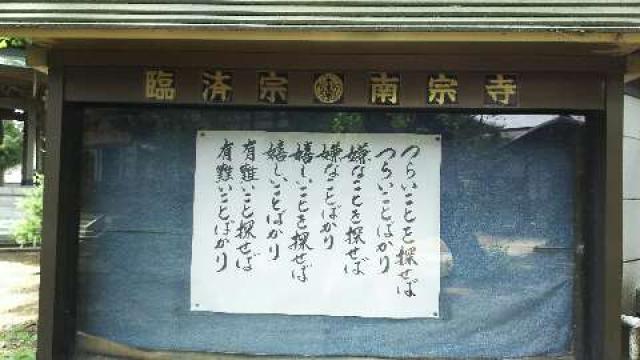 臨済宗 南宗寺
つらいことを探せば
つらいことばかり
嫌なことを探せば
嫌なことばかり
嬉しいことを探せば
嬉しいことばかり
有難いこと探せば
有難いことばかり